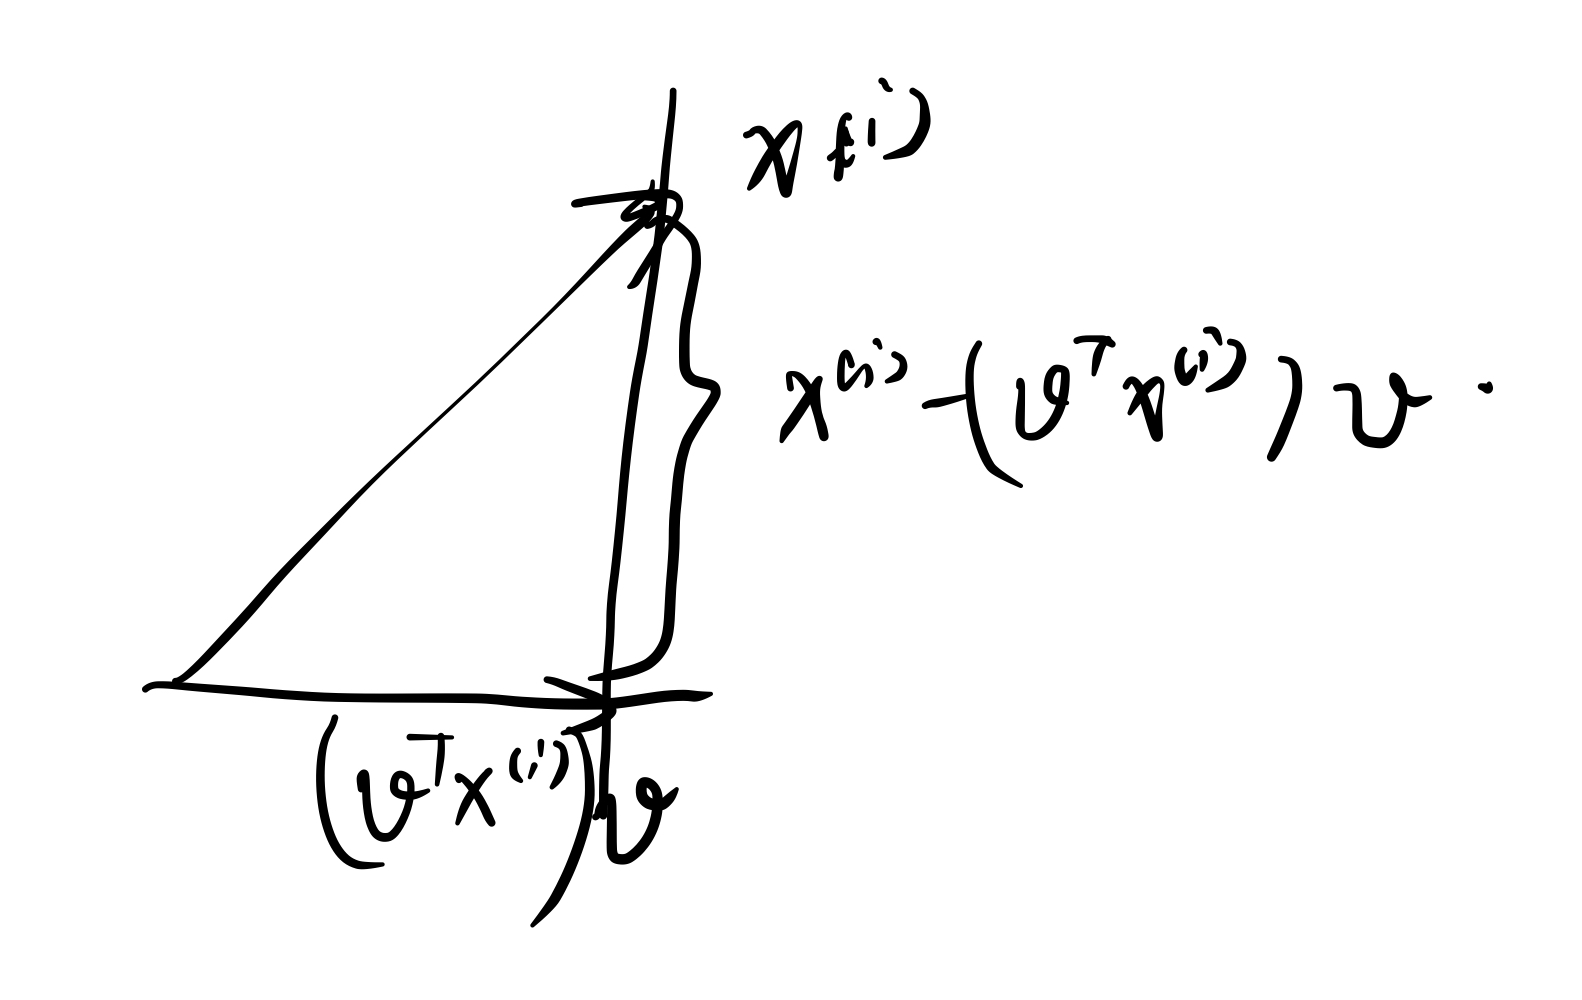 x^{(i)}
x^{(i)} - (v^T x^{(i)}) v .
(v^T x^{(i)}) v